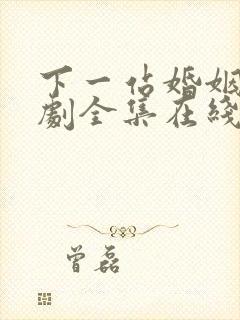 下一站婚姻
劇全集在綫
曾磊